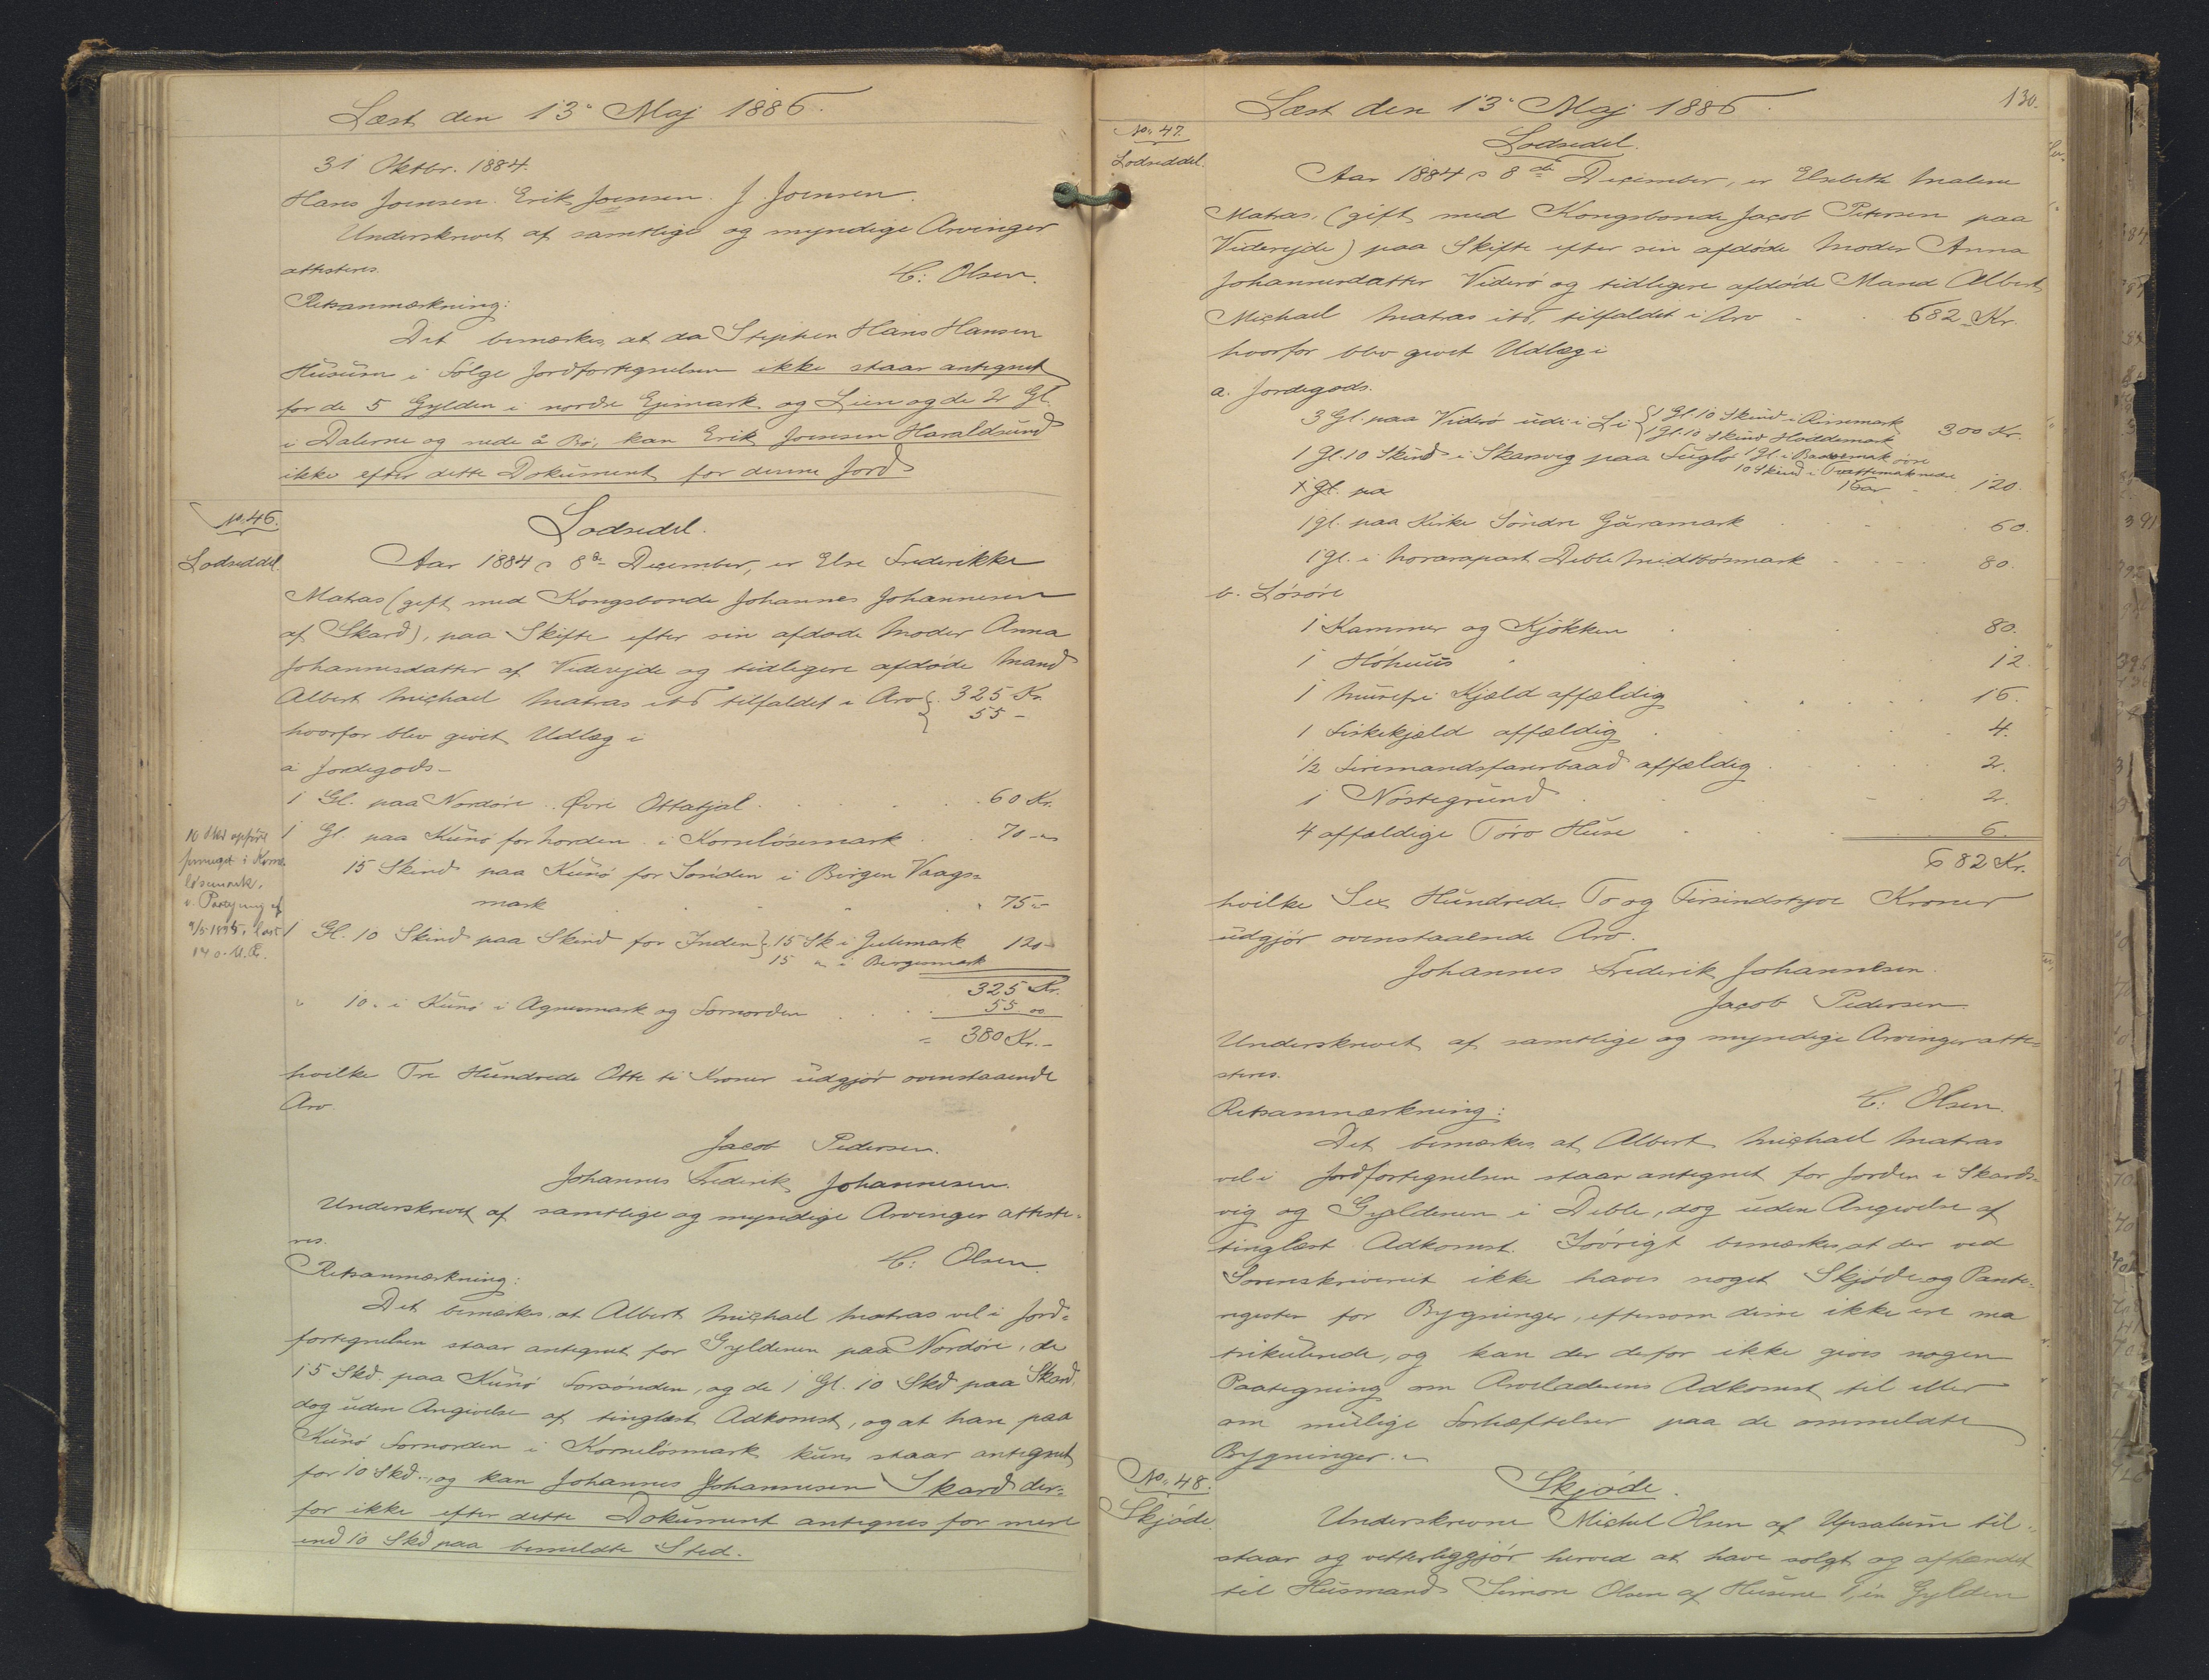 Læst den 13 Maj 1886.
31 Oktbr. 1884.
Hans Joensen. Erik Joensen. J. Joensen.
Underskrevet af samtlige og myndige Arvinger
attesteres.
C: Olsen.
Retsanmærkning:
Det bemærkes, at da Stephen Hans Hansen
Husum i Følge Jordfortegnelsen ikke staar antegnet
for de 5 Gylden i nordre Ejimark og Lien og de 2 Gl.
i Dalerne og nede å Bø, kan Erik Joensen Haraldsund
ikke efter dette Dokument for denne Jord
No. 46.
Lodseddel
Lodsedel.
Aar 1884 d 8de December, er Else Frederikke
Matras (gift med Kongsbonde Johannes Johannesen
af Skard), paa Skifte efter sin afdøde Moder Anna
Johannesdatter af Viderejde og tidligere afdøde Mand
Albert Michael Matras ibd tilfaldet i Arv 325 Kr.
55 -
hvorfor blev givet Udlæg i
a Jordegods -
1 Gl. paa Nordøre Øvre Ottatjal . . . 60 Kr.
1 Gl. paa Kunø for Norden i Korneløsemark . 70 -
15 Skind paa Kunø for Sønden i Birgen Vaags=
mark . . . 75 -
1 Gl. 10 Skind paa Skind for Inden 15 Sk i Julimark 120 -
15 " i Bergsmark
325 Kr.
" 10 " i Kunø i Agnesmark og Fornorden . . . 55 00
= 380 Kr. -
10 Skd opført
løsemark.
hvilke Tre Hundrede Otte ti Kroner udgjør ovenstaaende
Arv.
Jacob Pedersen.
Johannes Frederik Johannesen.
Underskrevet af samtlige og myndige Arvinger atteste=
res.
C: Olsen.
Retsanmærkning:
Det bemærkes, at Albert Michael Matras vel i Jord=
fortegnelsen staar antegnet for Gyldenen paa Nordøre, de
15 Skd. paa Kunø Forsønden, og de 1 Gl. 10 Skd paa Skard,
dog uden Angivelse af tinglæst Adkomst, og at han paa
Kunø Fornorden i Korneløsmark kun staar antegnet
for 10 Skd., og kan Johannes Johannesen Skard der=
for ikke efter dette Dokument antegnes for mere
end 10 Skd paa bemeldte Sted.
Læst den 13 Maj 1886.
130.
No. 47.
Lodseddel.
Lodsedel.
Aar 1884 d 8de December, er Elsebeth Malene
Matras, (gift med Kongsbonde Jacob Petersen paa
Viderejde) paa Skifte efter sin afdøde Moder Anna
Johannesdatter Viderø og tidligere afdøde Mand Albert
Michael Matras ibd, tilfaldet i Arv - . 682 Kr.
hvorfor blev givet Udlæg i
a. Jordegods.
3 Gl. paa Viderø udi i Li 1 Gl. 10 Skind i Rinemark
1 Gl. 10 Skind Hoddemark 300 Kr.
1 Gl. 10 Skind i Skarsvig paa Fuglø 1 Gl. i
10 Skind i
120.
1 gl. paa Kirke Søndre Garamark . . . 60.
1 gl. i Norarapart Deble Midtbømark . . . 80.
b. Løsøre
1 Kammer og Kjøkken . . . 80.
1 Høhuus . . . 12.
1 Murefri Kjæld affældig . . . 16.
1 Fiskekjæld affældig . . . 4.
1/2 Firemandsfarerbaad affældig . . . 2.
1 Nøstegrund . . . 2.
4 affældige Tørv Huse . . . 6.
682 Kr.
hvilke Sex Hundrede To og Firsindstyve Kroner
udgjør ovenstaaende Arv.
Johannes Frederik Johannesen.
Jacob Pedersen.
Underskrevet af samtlige og myndige Arvinger atte=
steres.
C: Olsen.
Retsanmærkning:
Det bemærkes, at Albert Michael Matras
vel i Jordfortegnelsen staar antegnet for Jorden i Skards=
vig og Gyldenen i Deble, dog uden Angivelse af
tinglæst Adkomst. Iøvrigt bemærkes, at der ved
Sorenskriveriet ikke haves noget Skjøde og Pante=
register for Bygninger, eftersom disse ikke ere ma
trikulerede, og kan der defor ikke gives nogen
Paategning om Arveladerens Adkomst til eller
om mulige Forhæftelser paa de ommeldte
Bygninger.
No. 48.
Skjøde.
Skjøde.
Underskrevne Michel Olsen af Upsalum til=
staar og vitterliggjør herved at have solgt og afhændet
til Husmand Simon Olsen af Husene 1, én Gylden